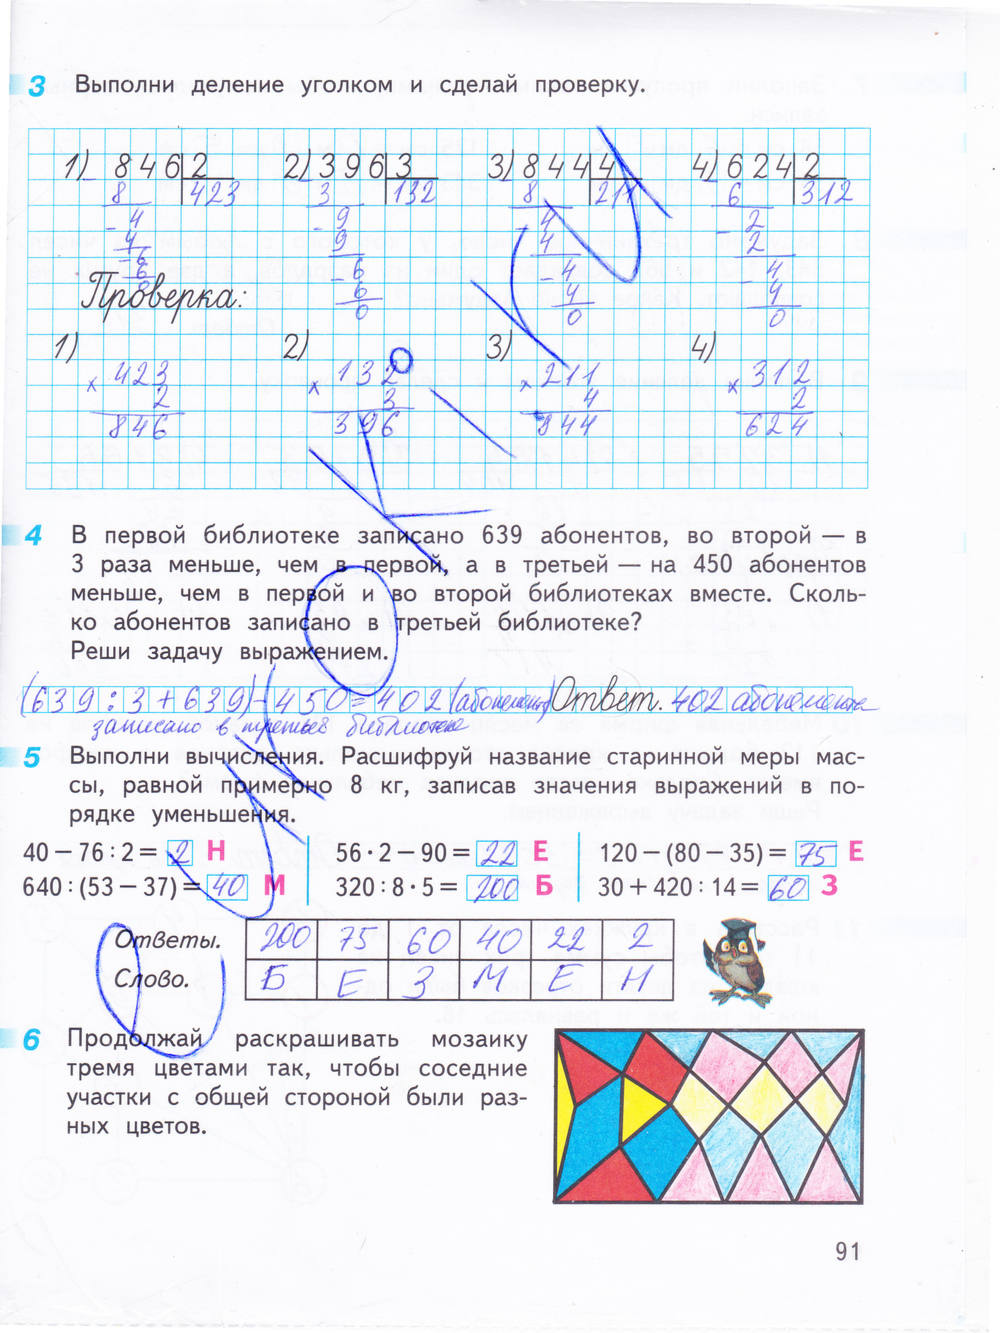 3 Выполни деление уголком и сделай проверку.
1) 846 2 2) 396 3 3) 844 4 4) 624 2
8 423 3 132 8 211 6 312
4 9 4 2
4 9 4 2
6 6 4 4
6 6 4 4
0 0 0 0
Проверка:
1) 2) 3) 4)
× 423 × 132 × 211 × 312
2 3 4 2
846 396 844 624
4 В первой библиотеке записано 639 абонентов, во второй — в
3 раза меньше, чем в первой, а в третьей — на 450 абонентов
меньше, чем в первой и во второй библиотеках вместе. Сколь-
ко абонентов записано в третьей библиотеке?
Реши задачу выражением.
(639:3+639)-450=402 (абонента) Ответ. 402 абонемента
записано в третьей библиотеке
5 Выполни вычисления. Расшифруй название старинной меры мас-
сы, равной примерно 8 кг, записав значения выражений в по-
рядке уменьшения.
40 – 76 : 2 = 2 Н 56 · 2 – 90 = 22 Е 120 – (80 – 35) = 75 Е
640 : (53 – 37) = 40 М 320 : 8 · 5 = 200 Б 30 + 420 : 14 = 60 З
Ответы. 200 75 60 40 22 2
Слово. Б Е З М Е Н
6 Продолжай раскрашивать мозаику
тремя цветами так, чтобы соседние
участки с общей стороной были раз-
ных цветов.
91